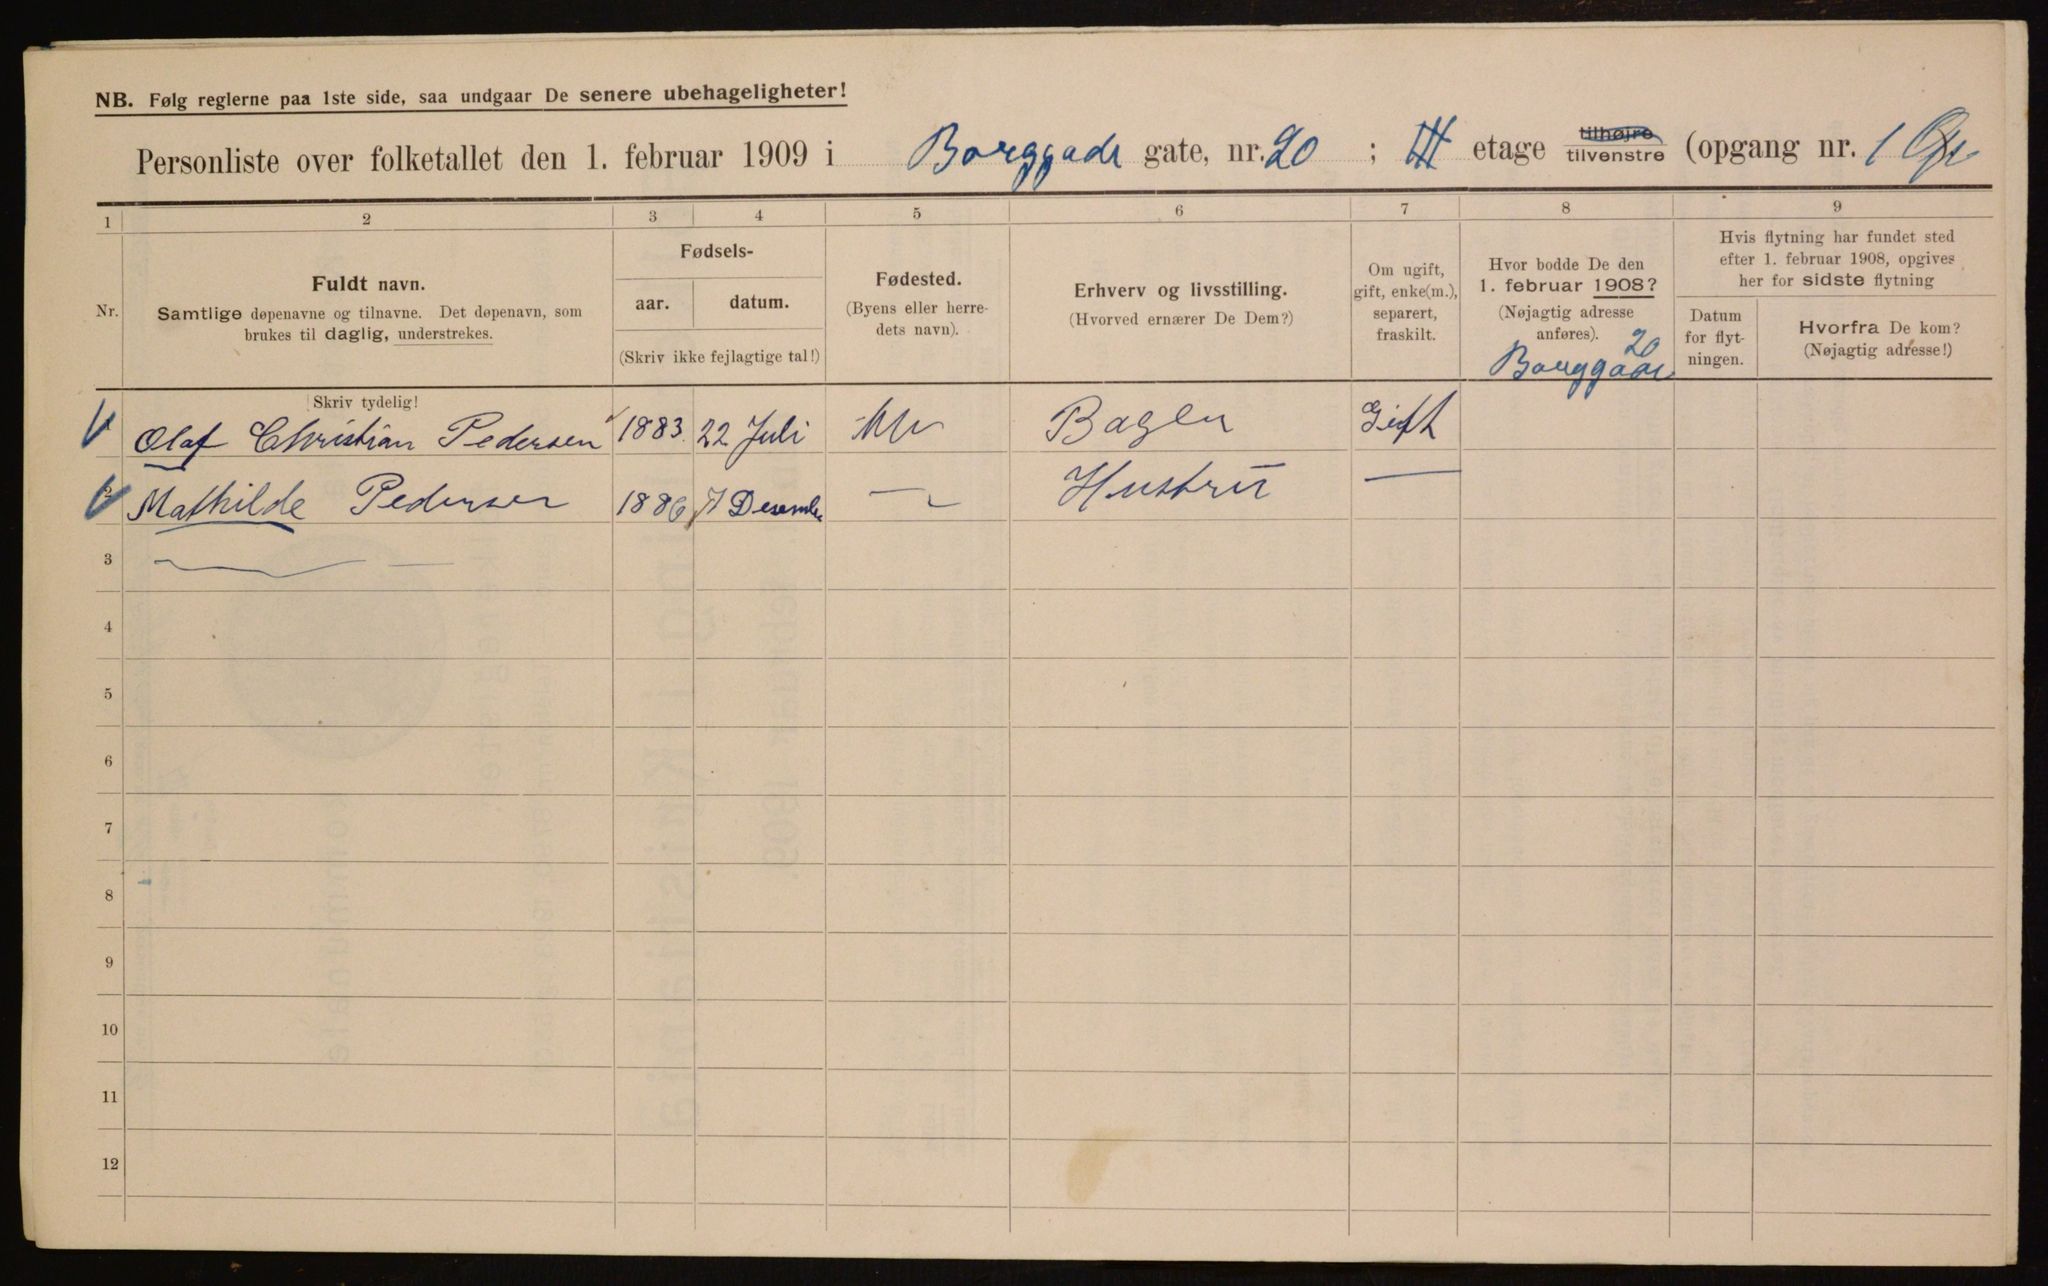 NB. Følg reglerne paa 1ste side, saa undgaar De senere ubehageligheter!
Personliste over folketallet den 1. februar 1909 i Borggade gate, nr. 20 ; III etage tilhøjre tilvenstre (opgang nr. 1
1 2 3 4 5 6 7 8 9
Nr.
Fuldt navn.
Samtlige døpenavne og tilnavne. Det døpenavn, som
brukes til daglig, understrekes.
Skriv tydelig!
Fødsels-
aar. datum.
(Skriv ikke fejlagtige tal!)
Fødested.
(Byens eller herre-
dets navn).
Erhverv og livsstilling.
(Hvorved ernærer De Dem?)
Om ugift,
gift, enke(m.),
separert,
fraskilt.
Hvor bodde De den
1. februar 1908?
(Nøjagtig adresse
anføres).
20
Borggade
Hvis flytning har fundet sted
efter 1. februar 1908, opgives
her for sidste flytning
Datum
for flyt-
ningen.
Hvorfra De kom?
(Nøjagtig adresse!)
Olaf Christian Pedersen 1883 22 Juli Bager Gift
2 Mathilde Pedersen 1886 7 Desember — Hustru —
3
4
5
6
7
8
9
10
11
12